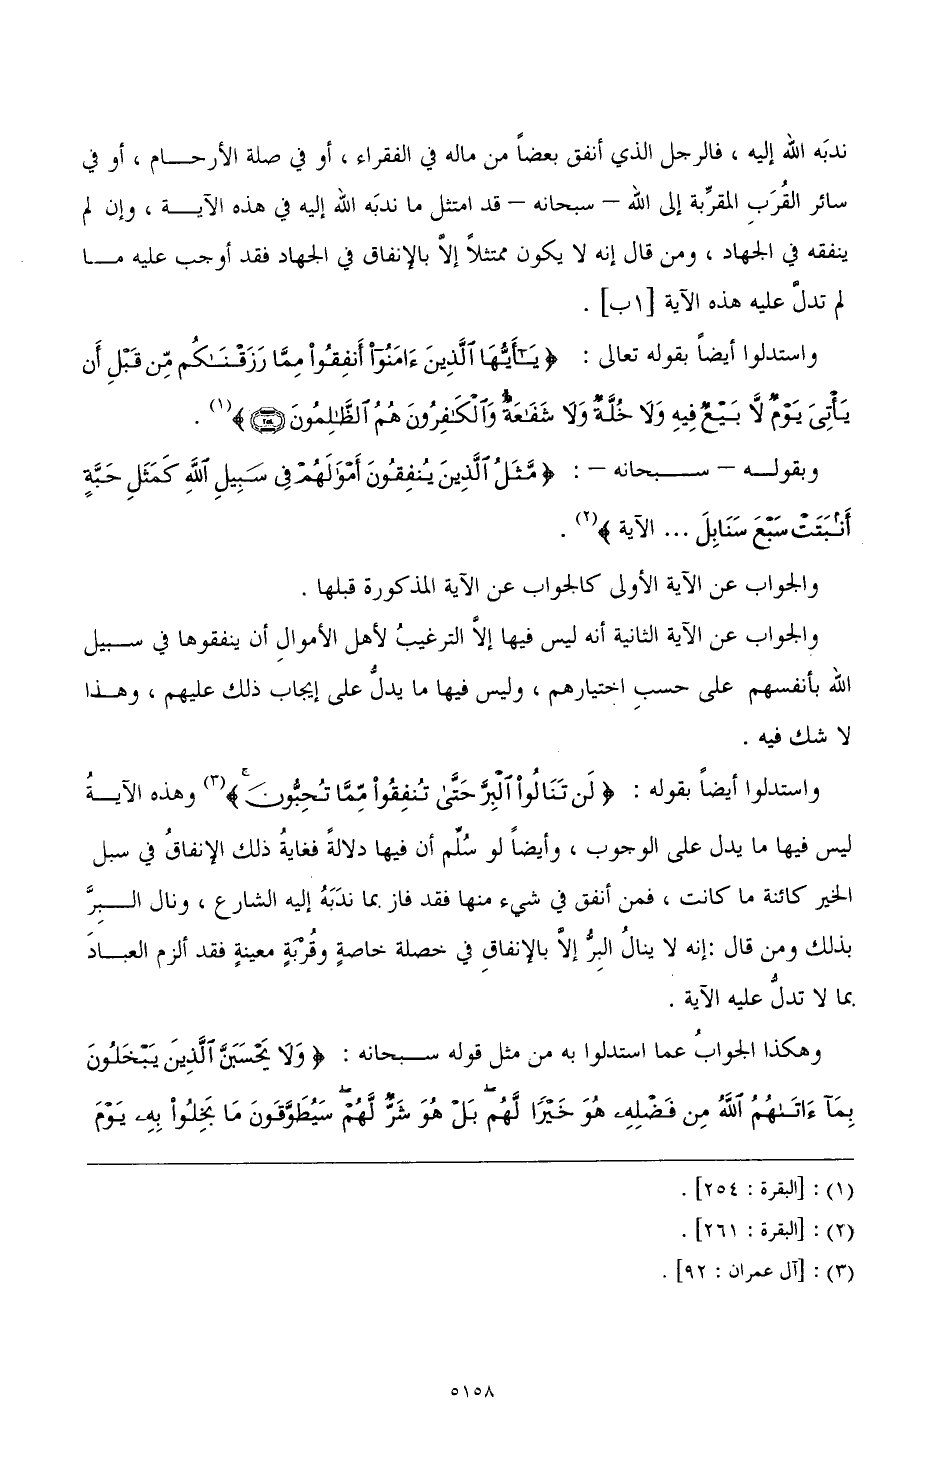 ندبَه الله إليه ، فالرجل الذي أنفق بعضاً من ماله في الفقراء ، أو في صلة الأرحـــام ، أو في
سائر القُرَب المقرِّبة إلى الله – سبحانه – قد امتثل ما ندبَه الله إليه في هذه الآيـــة ، وإن لم
ينفقه في الجهاد ، ومن قال إنه لا يكون ممتثلاً إلاَّ بالإنفاق في الجهاد فقد أوجب عليه مـــا
لم تدلَّ عليه هذه الآية [١ب] .
واستدلوا أيضاً بقوله تعالى : ﴿ يَـٰٓأَيُّهَا ٱلَّذِينَ ءَامَنُوٓا۟ أَنفِقُوا۟ مِمَّا رَزَقْنَـٰكُم مِّن قَبْلِ أَن
يَأْتِىَ يَوْمٌ لَّا بَيْعٌ فِيهِ وَلَا خُلَّةٌ وَلَا شَفَـٰعَةٌ وَٱلْكَـٰفِرُونَ هُمُ ٱلظَّـٰلِمُونَ ﴿٢٥٤﴾ ﴾(١) .
وبقولـــه – ســـبحانه – : ﴿ مَّثَلُ ٱلَّذِينَ يُنفِقُونَ أَمْوَٰلَهُمْ فِى سَبِيلِ ٱللَّهِ كَمَثَلِ حَبَّةٍ
أَنۢبَتَتْ سَبْعَ سَنَابِلَ ... الآية ﴾(٢) .
والجواب عن الآية الأولى كالجواب عن الآية المذكورة قبلها .
والجواب عن الآية الثانية أنه ليس فيها إلاَّ الترغيبُ لأهل الأموالِ أن ينفقوها في ســـبيل
الله بأنفسهم على حسبِ اختيارهم ، وليس فيها ما يدلُّ على إيجاب ذلك عليهم ، وهـــذا
لا شك فيه .
واستدلوا أيضاً بقوله : ﴿ لَن تَنَالُوا۟ ٱلْبِرَّ حَتَّىٰ تُنفِقُوا۟ مِمَّا تُحِبُّونَ ۚ ﴾(٣) وهذه الآيـــةُ
ليس فيها ما يدل على الوجوب ، وأيضاً لو سُلِّم أن فيها دلالةً فغايةُ ذلك الإنفاقُ في سبل
الخير كائنة ما كانت ، فمن أنفق في شيء منها فقد فاز بما ندَبَهُ إليه الشارع ، ونال الـــبِرَّ
بذلك ومن قال :إنه لا ينالُ البِرُّ إلاَّ بالإنفاقِ في خصلة خاصةٍ وقُرْبَةٍ معينةٍ فقد ألزم العبـــادَ
بما لا تدلُّ عليه الآية .
وهكذا الجوابُ عما استدلوا به من مثل قوله ســـبحانه : ﴿ وَلَا يَحْسَبَنَّ ٱلَّذِينَ يَبْخَلُونَ
بِمَآ ءَاتَىٰهُمُ ٱللَّهُ مِن فَضْلِهِۦ هُوَ خَيْرًا لَّهُم ۖ بَلْ هُوَ شَرٌّ لَّهُمْ ۖ سَيُطَوَّقُونَ مَا بَخِلُوا۟ بِهِۦ يَوْمَ
(١) : [البقرة : ٢٥٤] .
(٢) : [البقرة : ٢٦١] .
(٣) : [آل عمران : ٩٢] .
٥١٥٨